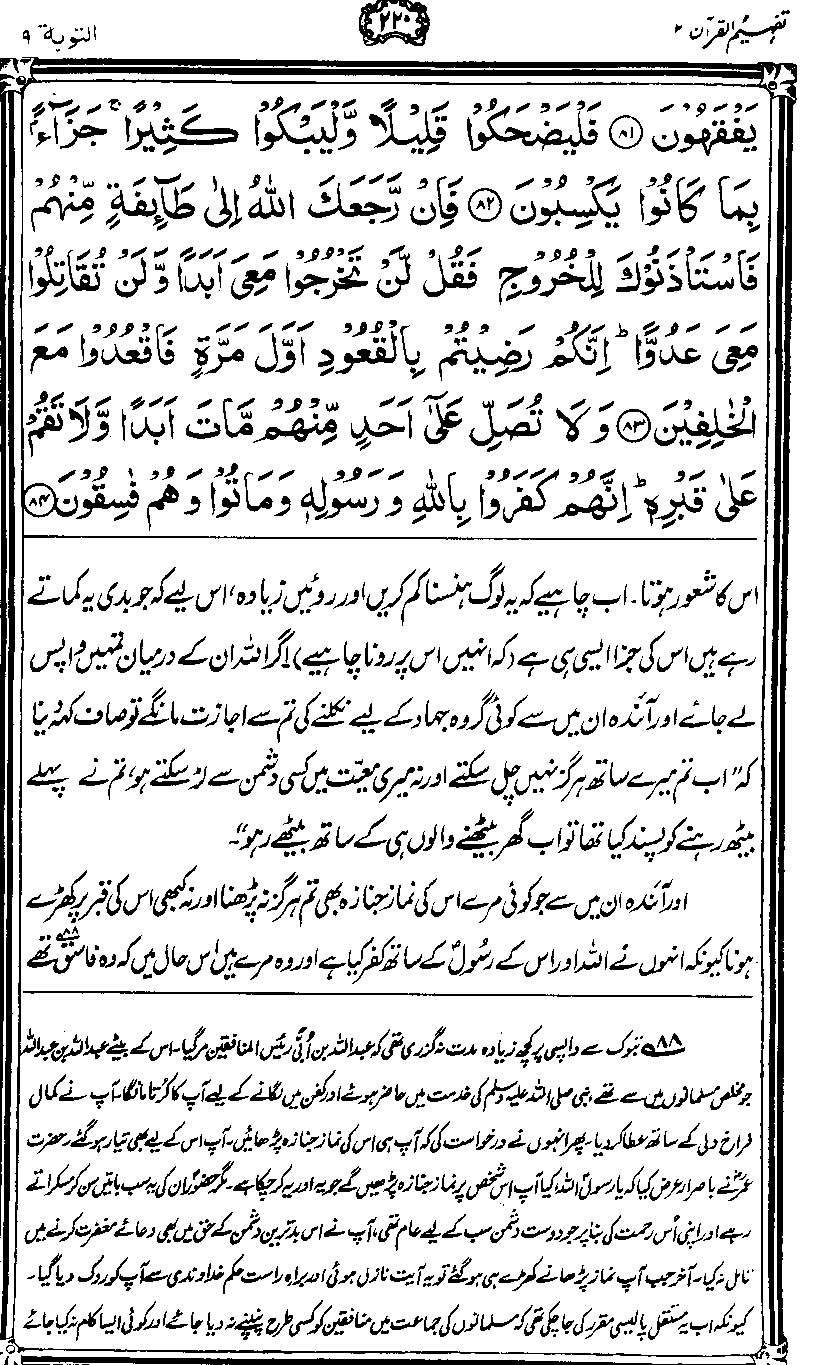 تفہیم القرآن ۲
۲۲۰
التوبۃ ۹
يَفْقَهُوْنَ ﴿۸۱﴾ فَلْيَضْحَكُوْا قَلِيْلًا وَّلْيَبْكُوْا كَثِيْرًاۚ جَزَآءًۢ
بِمَا كَانُوْا يَكْسِبُوْنَ ﴿۸۲﴾ فَاِنْ رَّجَعَكَ اللّٰهُ اِلٰى طَآىِٕفَةٍ مِّنْهُمْ
فَاسْتَاْذَنُوْكَ لِلْخُرُوْجِ فَقُلْ لَّنْ تَخْرُجُوْا مَعِيَ اَبَدًا وَّلَنْ تُقَاتِلُوْا
مَعِيَ عَدُوًّاؕ اِنَّكُمْ رَضِيْتُمْ بِالْقُعُوْدِ اَوَّلَ مَرَّةٍ فَاقْعُدُوْا مَعَ
الْخٰلِفِيْنَ ﴿۸۳﴾ وَلَا تُصَلِّ عَلٰٓى اَحَدٍ مِّنْهُمْ مَّاتَ اَبَدًا وَّلَا تَقُمْ
عَلٰى قَبْرِهٖؕ اِنَّهُمْ كَفَرُوْا بِاللّٰهِ وَرَسُوْلِهٖ وَمَاتُوْا وَهُمْ فٰسِقُوْنَ ﴿۸۴﴾
اس کا شعور ہوتا۔ اب چاہیے کہ یہ لوگ ہنسنا کم کریں اور روئیں زیادہ، اس لیے کہ جو بدی یہ کماتے
رہے ہیں اس کی جزا ایسی ہی ہے (کہ انہیں اس پر رونا چاہیے)۔ اگر اللہ ان کے درمیان تمہیں واپس
لے جائے اور آئندہ ان میں سے کوئی گروہ جہاد کے لیے نکلنے کی تم سے اجازت مانگے تو صاف کہہ دینا
کہ "اب تم میرے ساتھ ہرگز نہیں چل سکتے اور نہ میری معیّت میں کسی دشمن سے لڑ سکتے ہو، تم نے پہلے
بیٹھ رہنے کو پسند کیا تھا تو اب گھر بیٹھنے والوں ہی کے ساتھ بیٹھے رہو"۔
اور آئندہ ان میں سے جو کوئی مرے اس کی نماز جنازہ بھی تم ہرگز نہ پڑھنا اور نہ کبھی اس کی قبر پر کھڑے
ہونا کیونکہ انہوں نے اللہ اور اس کے رسُولؐ کے ساتھ کفر کیا ہے اور وہ مرے ہیں اس حال میں کہ وہ فاسق تھے ۸۸
۸۸ تبوک سے واپسی پر کچھ زیادہ مدت نہ گزری تھی کہ عبداللہ بن اُبَیّ رئیس المنافقین مرگیا۔ اس کے بیٹے عبداللہ بن عبداللہ
جو مخلص مسلمانوں میں سے تھے، نبی صلی اللہ علیہ وسلم کی خدمت میں حاضر ہوئے اور کفن میں لگانے کے لیے آپ کا کُرتا مانگا۔ آپ نے کمال
فراخ دلی کے ساتھ عطا کردیا۔ پھر انہوں نے درخواست کی کہ آپ ہی اس کی نماز جنازہ پڑھائیں۔ آپ اس کے لیے بھی تیار ہوگئے۔ حضرت
عمرؓ نے باصرار عرض کیا کہ یا رسول اللہ، کیا آپ اس شخص پر نماز جنازہ پڑھیں گے جو یہ اور یہ کرچکا ہے۔ مگر حضورؐ ان کی یہ سب باتیں سن کر مسکراتے
رہے اور اپنی اُس رحمت کی بنا پر جو دوست دشمن سب کے لیے عام تھی، آپ نے اس بدترین دشمن کے حق میں بھی دعائے مغفرت کرنے میں
تامل نہ کیا۔ آخر جب آپ نماز پڑھانے کھڑے ہی ہوگئے تو یہ آیت نازل ہوئی اور براہِ راست حکم خداوندی سے آپ کو روک دیا گیا۔
کیونکہ اب یہ مستقل پالیسی مقرر کی جاچکی تھی کہ مسلمانوں کی جماعت میں منافقین کو کسی طرح پنپنے نہ دیا جائے اور کوئی ایسا کام نہ کیا جائے